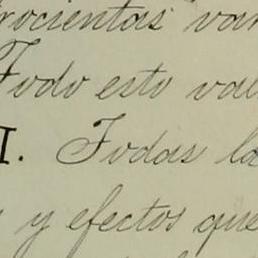 rocientas var
Todo esto val
I. Todas la
y efectos que